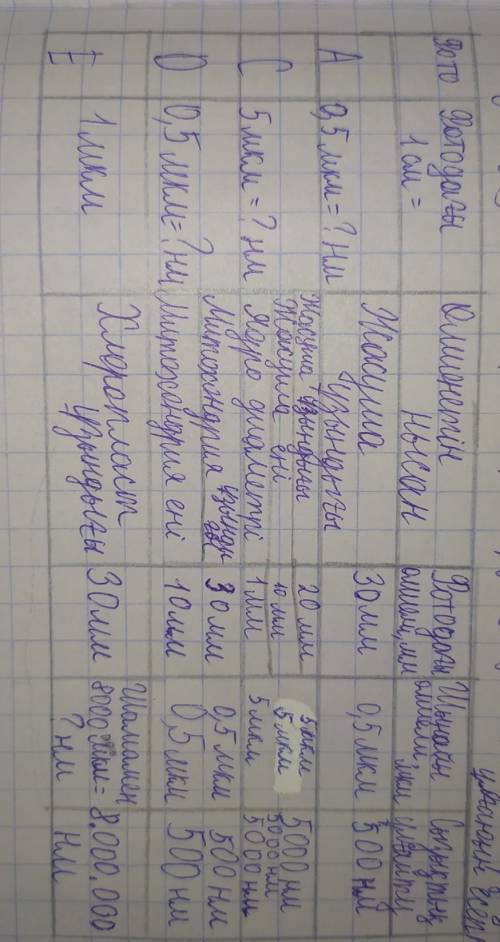 Фото
Фотодағы
1 см =
Өлшенетін
нысан
Фотодағы
өлшем, мм
Шынайы
өлшем, мкм
Сызықтық
A
0,5 мкм = ? нм
Жасуша
ұзындығы
30 мм
0,5 мкм
500 нм
C
5 мкм = ? нм
Жасуша ұзындығы
20 мм
5 мкм
5000 нм
Жасуша ені
10 мм
5 мкм
5000 нм
Ядро диаметрі
1 мм
5 мкм
5000 нм
D
0,5 мкм = ? нм
Митохондрия
30 мм
0,5 мкм
500 нм
Митохондрия ені
10 мм
0,5 мкм
500 нм
E
1 мкм
Хлоропласт
ұзындығы
30 мм
Шамамен
8000 мкм =
? нм
8.000.000
нм